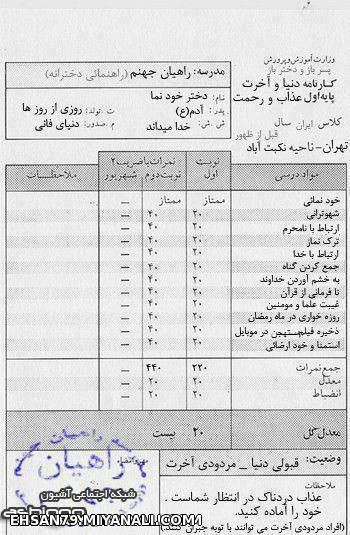 وزارت آموزش و پرورش
پسر باز و دختر باز
کارنامه دنیا و آخرت
پایه اول عذاب و رحمت
کلاس ایران سال
قبل از ظهور
تهران - ناحیه نکبت آباد
مدرسه: راهیان جهنم (راهنمائی دخترانه)
نام: دختر خود نما
پدر: آدم(ع) ت. تولد: روزی از روز ها
ش. ش: خدا میداند م. صدور: دنیای فانی
مواد درسی نوبت اول نمرات با ضریب ۲ نوبت دوم شهریور ملاحظات
خود نمائی ممتاز ممتاز —
شهوترانی ۲۰ ۴۰ —
ارتباط با نامحرم ۲۰ ۴۰ —
ترک نماز ۲۰ ۴۰ —
ارتباط با خدا ۲۰ ۴۰ —
جمع کردن گناه ۲۰ ۴۰ —
به خشم آوردن خداوند ۲۰ ۴۰ —
نا فرمانی از قرآن ۲۰ ۴۰ —
غیبت علما و مومنین ۲۰ ۴۰ —
روزه خواری در ماه رمضان ۲۰ ۴۰ —
ذخیره فیلم مستهجن در موبایل ۲۰ ۴۰ —
استمنا و خود ارضائی ۲۰ ۴۰ —
جمع نمرات ۲۲۰ ۴۴۰
معدل ۲۰ ۲۰ —
انضباط ۲۰ ۲۰ —
معدل کل ۲۰ بیست
وضعیت: قبولی دنیا _ مردودی آخرت
مهر و امضاء
ملاحظات
عذاب دردناک در انتظار شماست .
خود را آماده کنید.
(افراد مردودی آخرت می توانند با توبه جبران کنند)
راهیان
راهیان
شبکه اجتماعی آشیون
EHSAN79.MIYANALI.COM